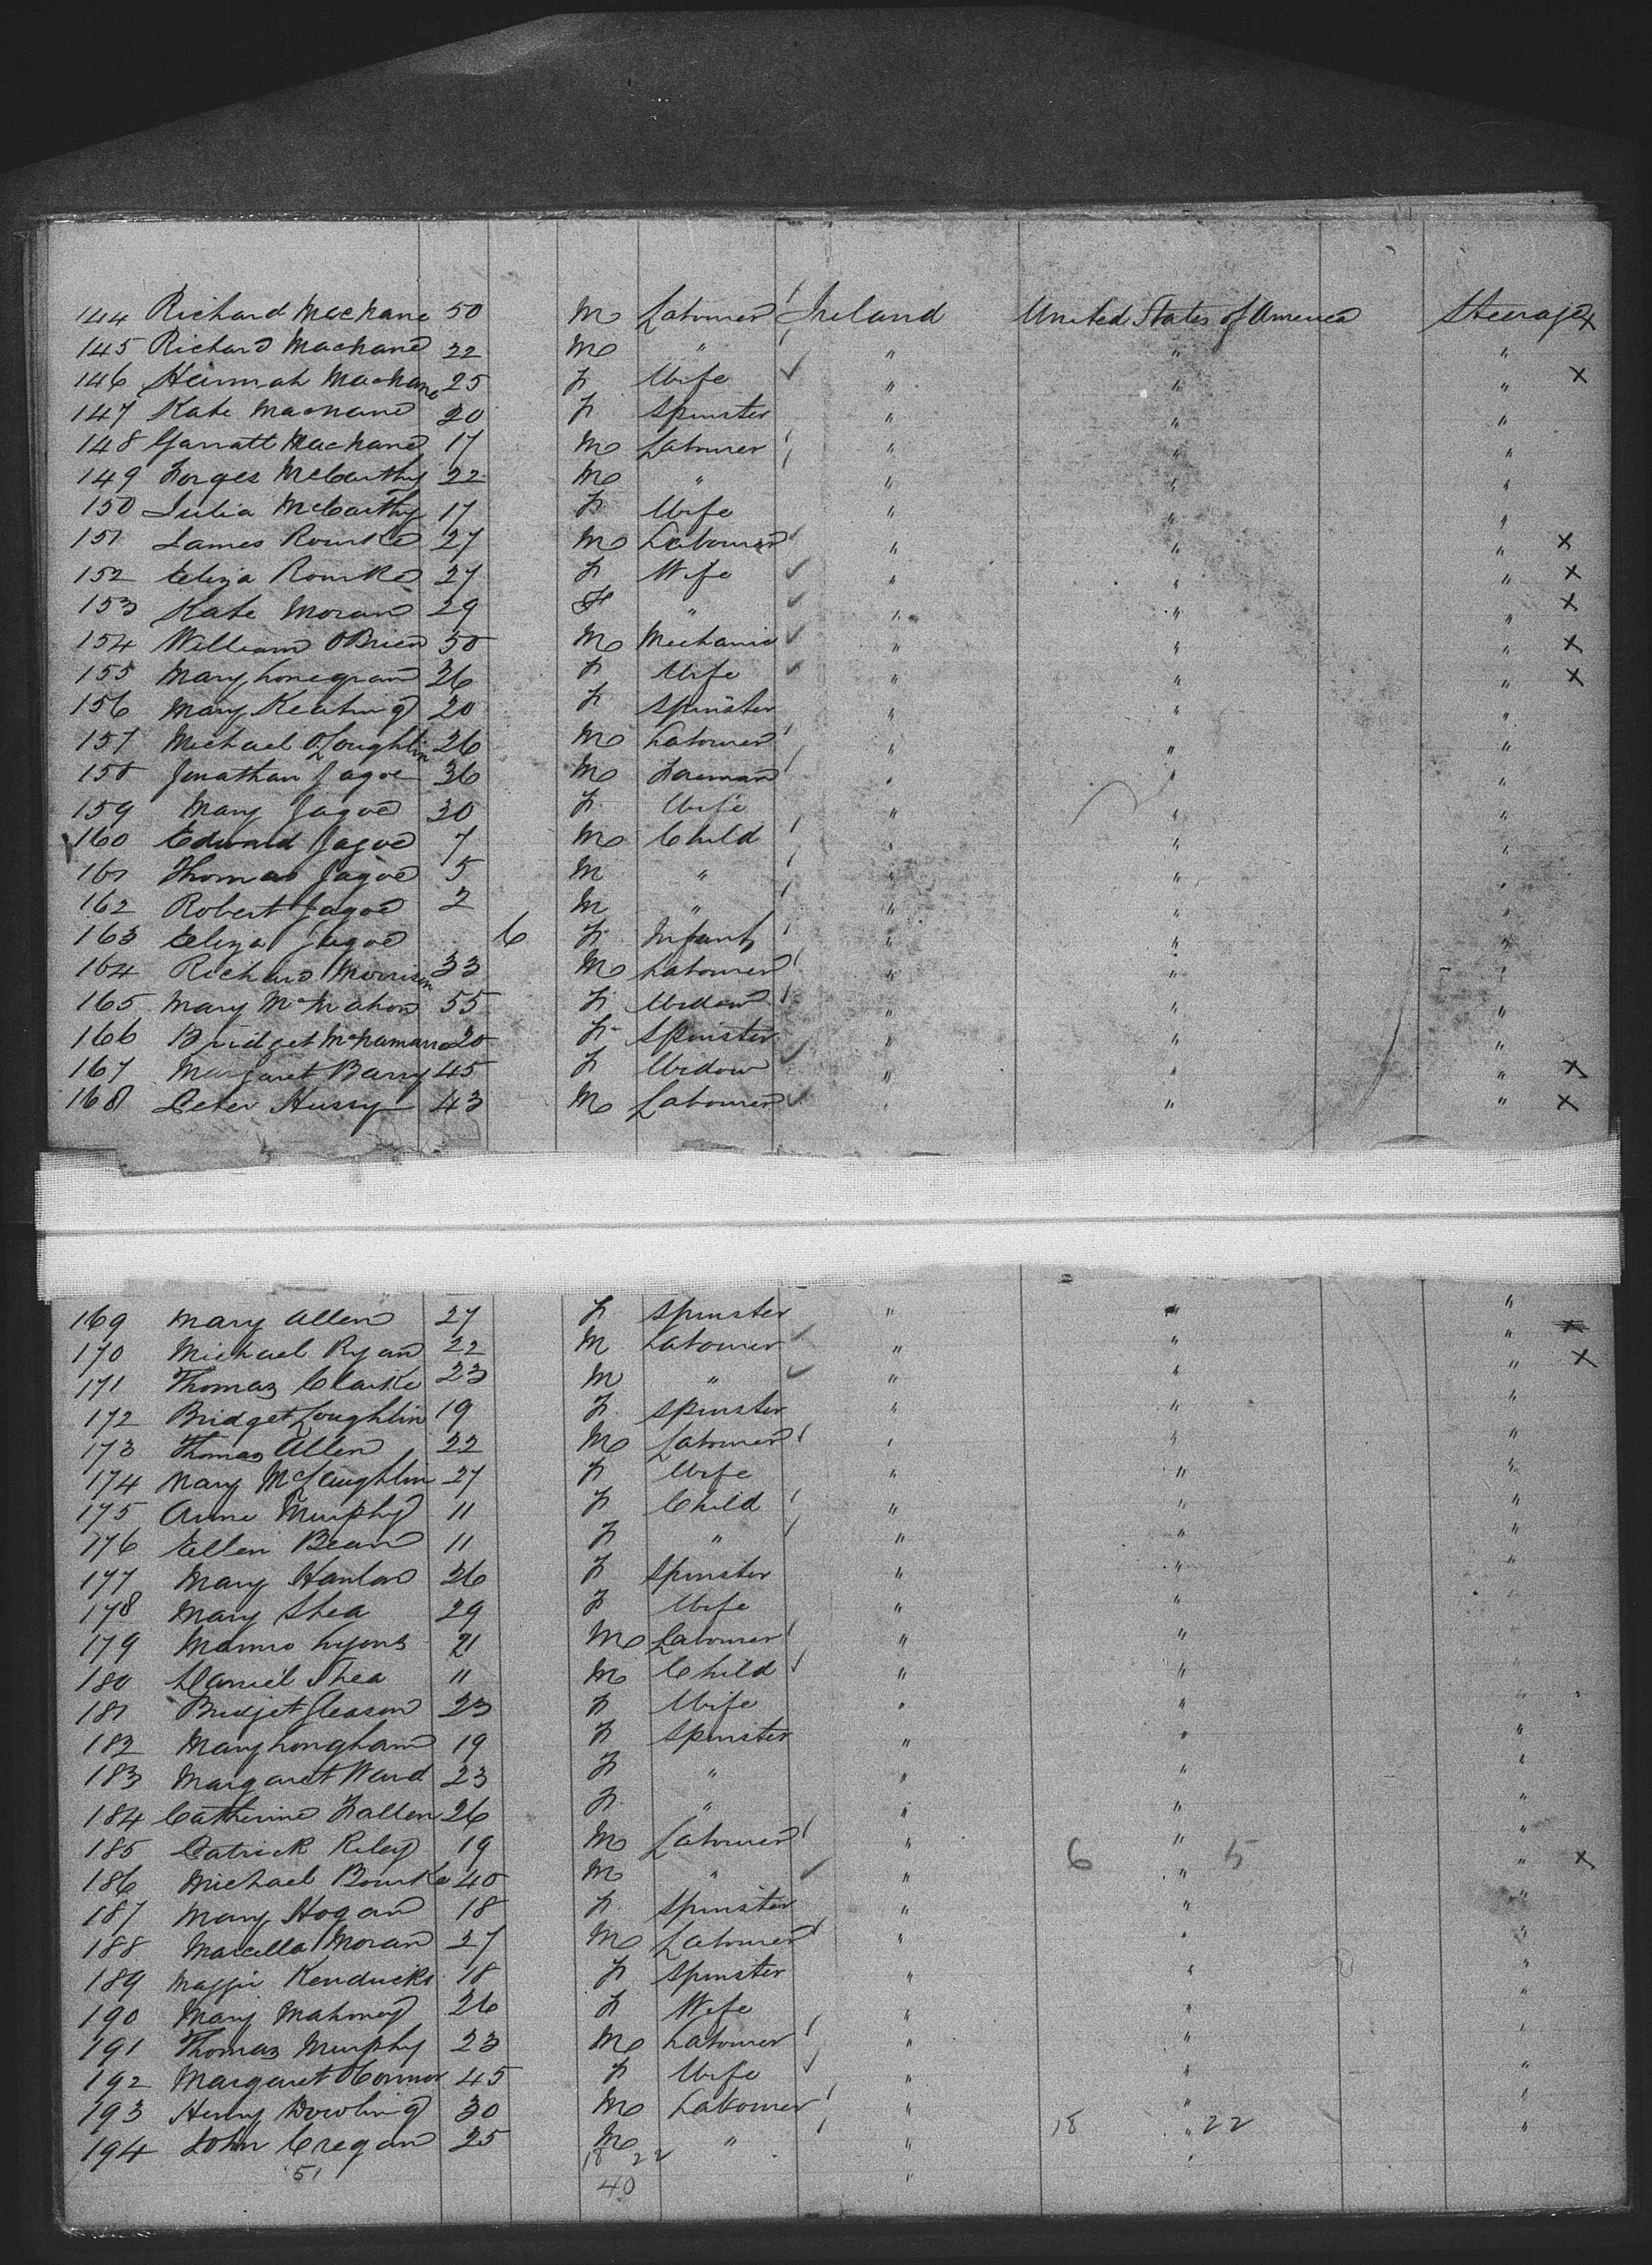 144 Richard MacNane 50 M Labourer Ireland United States of America Steerage x
145 Richard MacNane 22 M " " " "
146 Hannah MacNane 25 F Wife ✓ " " " x
147 Kate MacNane 20 F Spinster " " "
148 Garratt MacNane 17 M Labourer " " "
149 Forges McCarthy 22 M " " " "
150 Julia McCarthy 17 F Wife " " "
151 James Rourke 27 M Labourer " " " x
152 Eliza Rourke 27 F Wife ✓ " " " x
153 Kate Moran 29 F " ✓ " " " x
154 William OBrien 50 M Mechanic ✓ " " " x
155 Mary Lonegran 26 F Wife ✓ " " " x
156 Mary Keating 20 F Spinster " " "
157 Michael O'Loughlin 26 M Labourer " " "
158 Jonathan Jagoe 36 M Foreman " " "
159 Mary Jagoe 30 F Wife " " "
160 Edward Jagoe 7 M Child " " "
161 Thomas Jagoe 5 M " " " "
162 Robert Jagoe 2 M " " " "
163 Eliza Jagoe 6 F Infant " " "
164 Richard Morrison 33 M Labourer " " "
165 Mary McMahon 55 F Widow " " "
166 Bridget McNamara 20 F Spinster " " "
167 Margaret Barry 45 F Widow ✓ " " " x
168 Peter Hussy 43 M Labourer ✓ " " " x
169 Mary Allen 27 F Spinster " " "
170 Michael Ryan 22 M Labourer ✓ " " " x
171 Thomas Clarke 23 M " ✓ " " " x
172 Bridget Loughlin 19 F Spinster " " "
173 Thomas Allen 22 M Labourer " " "
174 Mary McLaughlin 27 F Wife " " "
175 Anne Murphy 11 F Child " " "
176 Ellen Bean 11 F " " " "
177 Mary Hanlon 26 F Spinster " " "
178 Mary Shea 29 F Wife " " "
179 Lyons 21 M Labourer " " "
180 Daniel Shea 11 M Child " " "
181 Bridget Gleason 23 F Wife " " "
182 Mary Longham 19 F Spinster " " "
183 Margaret Ward 23 F " " " "
184 Catherine Fallen 26 F " " " "
185 Patrick Riley 19 M Labourer " " "
6 5
186 Michael Bourke 40 M " ✓ " " " x
187 Mary Hogan 18 F Spinster " " "
188 Marcella Moran 27 M Labourer " " "
189 Maggie Kendricks 18 F Spinster " " "
190 Mary Mahoney 26 F Wife " " "
191 Thomas Murphy 23 M Labourer " " "
192 Margaret OConnor 45 F Wife " " "
193 Henry Dowling 30 M Labourer " " "
18 22
194 John Cregan 25 M " " " "
18 22
51 40